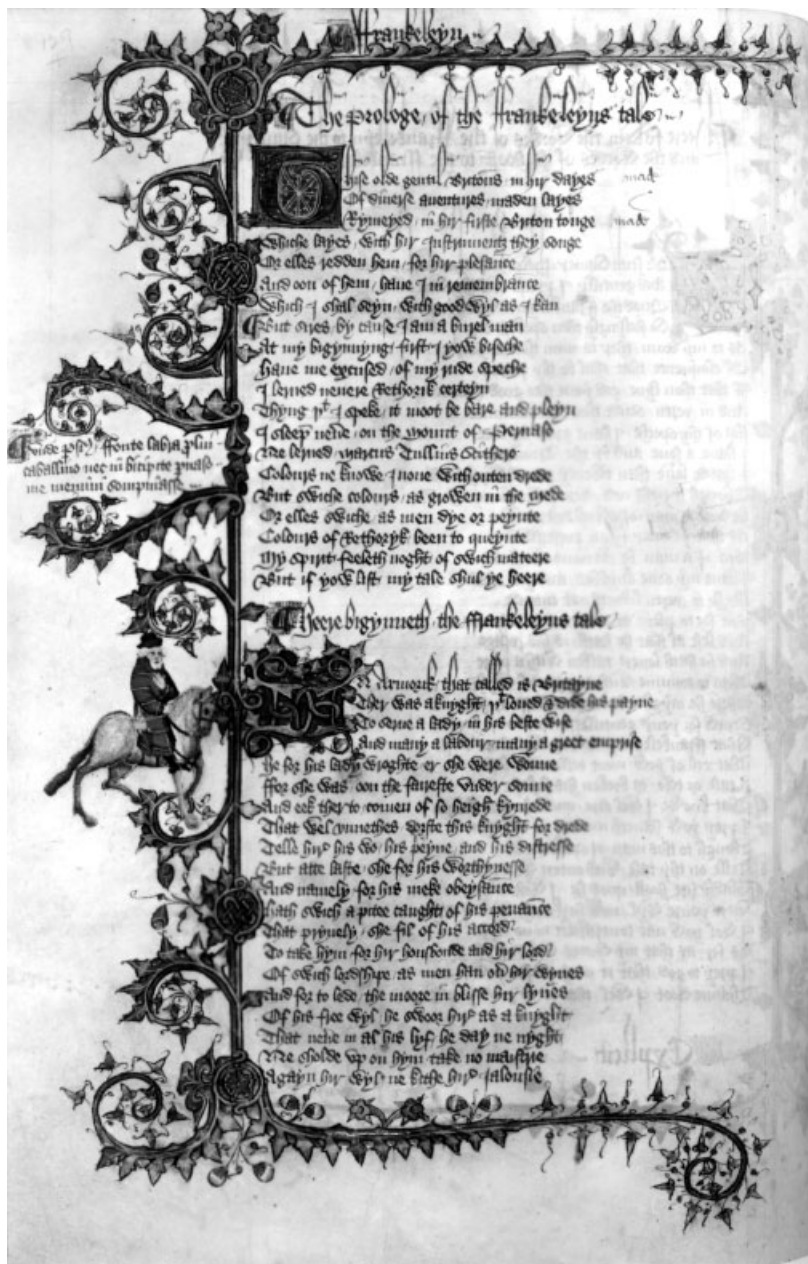 Frankeleyn
The prologe of the Frankeleyns tale
Thise olde gentil Britons in hir dayes
Of diverse aventures maden layes
Rymeyed in hir firste Briton tonge
Whiche layes with hir Instrumentz they songe
Or elles redden hem for hir plesance
And oon of hem have I in remembrance
Which I shal seyn with good wyl as I kan
But sires by cause I am a burel man
At my bigynnyng first I yow biseche
Have me excused of my rude speche
I lerned nevere Rethorik certeyn
Thyng þt I speke it moot be bare and pleyn
I sleep neue on the mount of Pernaso
Ne lerned Marcus Tullius Scithero
Colours ne knowe I none withouten drede
But swiche colours as growen in the mede
Or elles swiche as men dye or peynte
Colours of Rethoryk been to queynte
My spirit feeleth noght of swich mateere
But if yow list my tale shul ye heere
ffonte labra plui
caballino nec in bicipite pnaso
me memini sompniasse
Heere bigynneth the Frankeleyns tale
In Armorik that called is Britayne
Ther was a knyght þt loued & dide his payne
To serve a lady in his beste wise
And many a labour many a greet emprise
He for his lady wroghte er she were wonne
ffor she was oon the faireste vnder sonne
And eek ther to comen of so heigh kynrede
That wel vnnethes dorste this knyght for drede
Telle hire his wo his peyne and his distresse
But atte laste she for his worthynesse
And namely for his meke obeysance
Hath swich a pitee caught of his penance
That pryuely she fil of his accord
To take hym for hir housbonde and hir lord
Of swich lordshipe as men han ouer hir wyues
And for to lede the moore in blisse hir lyues
Of his free wyl he swoor hire as a knyght
That neue in al his lyf he day ne nyght
Ne sholde vp on hym take no maistrie
Agayn hir wyl ne kithe hire Jalousie